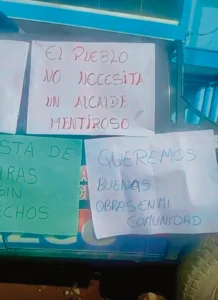 "EL PUEBLO
NO NECESITA
UN ALCALDE
MENTIROSO"
STA DE
RAS
SIN
ECHOS
QUEREMOS
BUENAS
OBRAS EN MI
COMUNIDAD